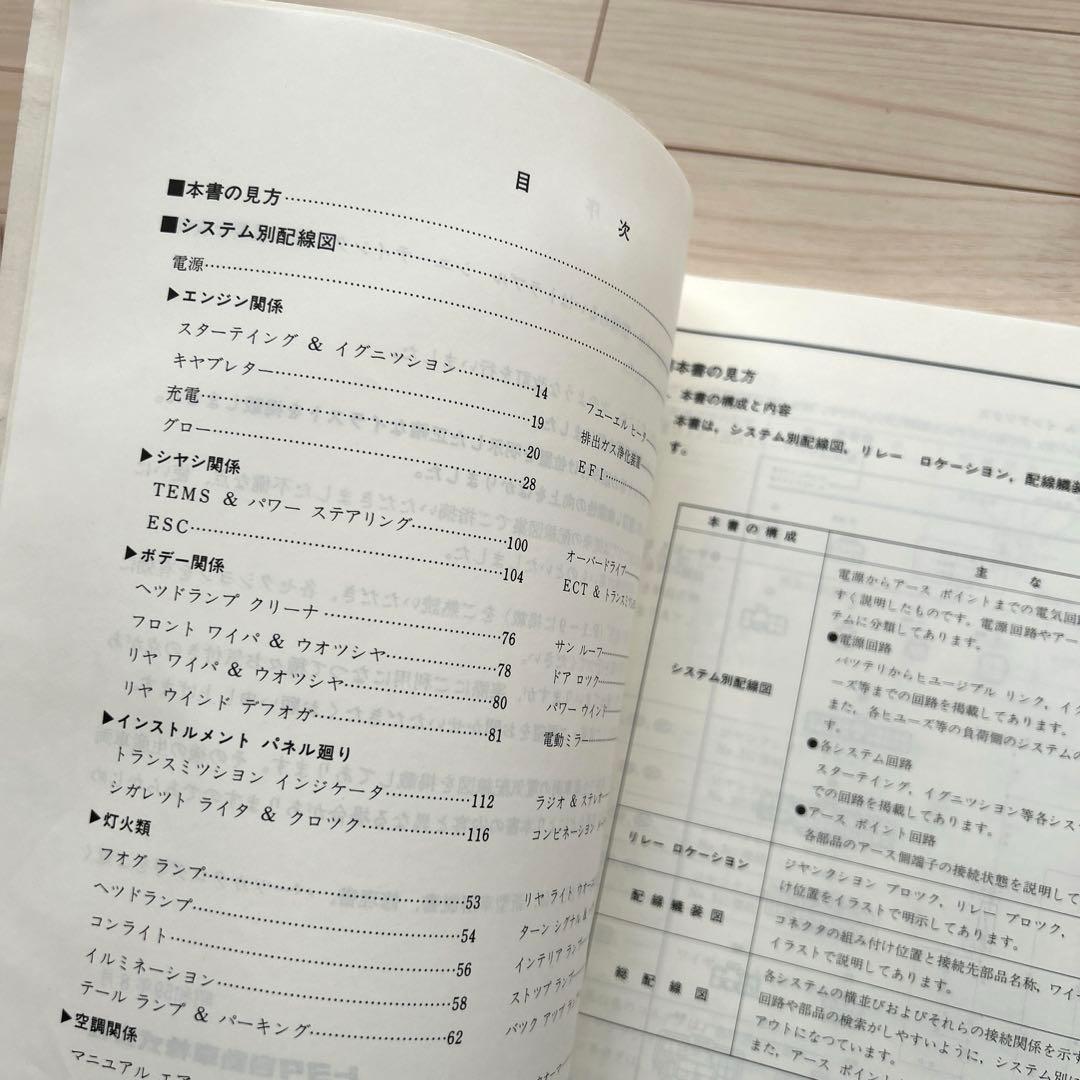 目次
■本書の見方
■システム別配線図
電源
▶エンジン関係
スターテイング & イグニツション 14 フユーエル ヒーター
キヤブレター 19 排出ガス浄化装置
充電 20 EFI
グロー 28
▶シヤシ関係
TEMS & パワー ステアリング 100 オーバードライブ
ESC 104 ECT & トランスミツ
▶ボデー関係
ヘツドランプ クリーナ 76 サン ルーフ
フロント ワイパ & ウオツシヤ 78 ドア ロック
リヤ ワイパ & ウオツシヤ 80 パワー ウインド
リヤ ウインド デフオガ 81 電動ミラー
▶インストルメント パネル廻り
トランスミツション インジケータ 112 ラジオ & ステレオ
シガレツト ライタ & クロツク 116 コンビネーション
▶灯火類
フオグ ランプ 53 リヤ ライト ウオー
ヘツドランプ 54 ターン シグナル &
コンライト 56 インテリア ランプ
イルミネーション 58 ストツプ ランプ
テール ランプ & パーキング 62 バツク アツプ ラン
▶空調関係
マニユアル エア
本書の見方
本書の構成と内容
本書は，システム別配線図，リレー ロケーション，配線艤装
す。
本書の構成
主な
システム別配線図
電源からアース ポイントまでの電気回
すく説明したものです。電源回路やアー
テムに分類してあります。
●電源回路
バツテリからヒユージブル リンク，イ
ーズ等までの回路を掲載してあります。
また，各ヒューズ等の負荷側のシステムの
す。
●各システム回路
スターテイング，イグニツション等各シス
での回路を掲載してあります。
●アース ポイント回路
各部品のアース側端子の接続状態を説明して
リレー ロケーション
ジヤンクション ブロツク，リレー ブロツク，
け位置をイラストで明示してあります。
配線艤装図
コネクタの組み付け位置と接続先部品名称，ワイ
イラストで説明してあります。
総配線図
各システムの横並びおよびそれらの接続関係を示す
回路や部品の検索がしやすいように，システム別に
アウトになつています。
また，アース ポイン